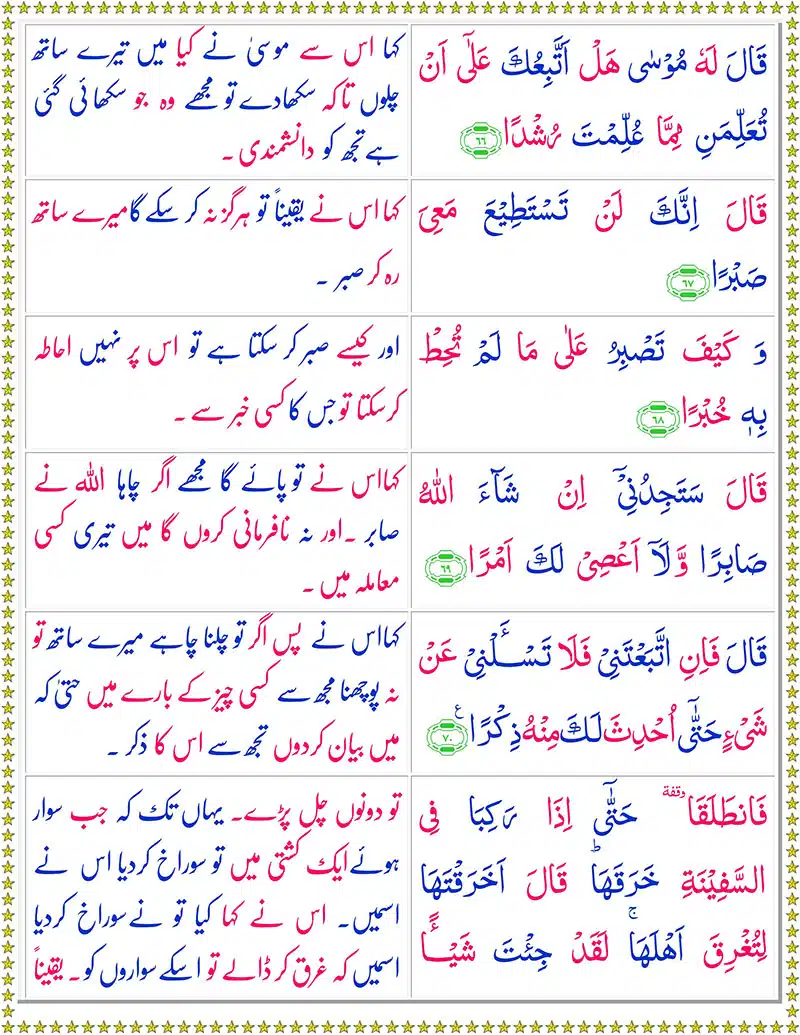 قَالَ لَهٗ مُوْسٰى هَلْ اَتَّبِعُكَ عَلٰۤى اَنْ
تُعَلِّمَنِ مِمَّا عُلِّمْتَ رُشْدًا ﴿۶۶﴾
کہا اس سے موسیٰ نے کیا میں تیرے ساتھ
چلوں تاکہ سکھادے تو مجھے وہ جو سکھائی گئی
ہے تجھ کو دانشمندی ۔
قَالَ اِنَّكَ لَنْ تَسْتَطِيْعَ مَعِىَ
صَبْرًا ﴿۶۷﴾
کہا اس نے یقیناً تو ہرگز نہ کر سکے گا میرے ساتھ
رہ کر صبر ۔
وَ كَيْفَ تَصْبِرُ عَلٰى مَا لَمْ تُحِطْ
بِهٖ خُبْرًا ﴿۶۸﴾
اور کیسے صبر کر سکتا ہے تو اس پر نہیں احاطہ
کرسکتا تو جس کا کسی خبر سے ۔
قَالَ سَتَجِدُنِىْۤ اِنْ شَآءَ اللّٰهُ
صَابِرًا وَّلَاۤ اَعْصِىْ لَكَ اَمْرًا ﴿۶۹﴾
کہااس نے تو پائے گا مجھے اگر چاہا اللہ نے
صابر ۔اور نہ نافرمانی کروں گا میں تیری کسی
معاملہ میں ۔
قَالَ فَاِنِ اتَّبَعْتَنِىْ فَلَا تَسْــَٔلْنِىْ عَنْ
شَىْءٍ حَتّٰۤى اُحْدِثَ لَكَ مِنْهُ ذِكْرًا ﴿۷۰﴾ ع
کہااس نے پس اگر تو چلنا چاہے میرے ساتھ تو
نہ پوچھنا مجھ سے کسی چیز کے بارے میں حتیٰ کہ
میں بیان کردوں تجھ سے اس کا ذکر ۔
فَانْطَلَقَا وقفة حَتّٰۤى اِذَا رَكِبَا فِى
السَّفِيْنَةِ خَرَقَهَا ؕ قَالَ اَخَرَقْتَهَا
لِتُغْرِقَ اَهْلَهَا ۚ لَقَدْ جِئْتَ شَيْــًٔـا
تو دونوں چل پڑے۔ یہاں تک کہ جب سوار
ہوئے ایک کشتی میں تو سوراخ کردیا اس نے
اسمیں۔ اس نے کہا کیا تو نے سوراخ کردیا
اسمیں کہ غرق کر ڈالے تو اسکے سواروں کو ۔ یقیناً